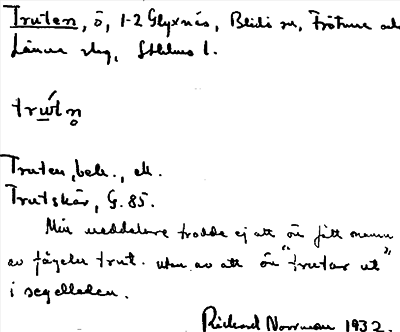 Truten, ö, 1-2 Glyxnäs, Blidö sn, Frötuna och
Länna skg, Sthlms l.
trẃtn
Truten, bek., ek.
Trutskär, G. 85.
Min meddelare trodde ej att ön fått namn
av fågeln trut. utan av att ön "trutar ut"
i segelleden.
Richard Norrman 1932.